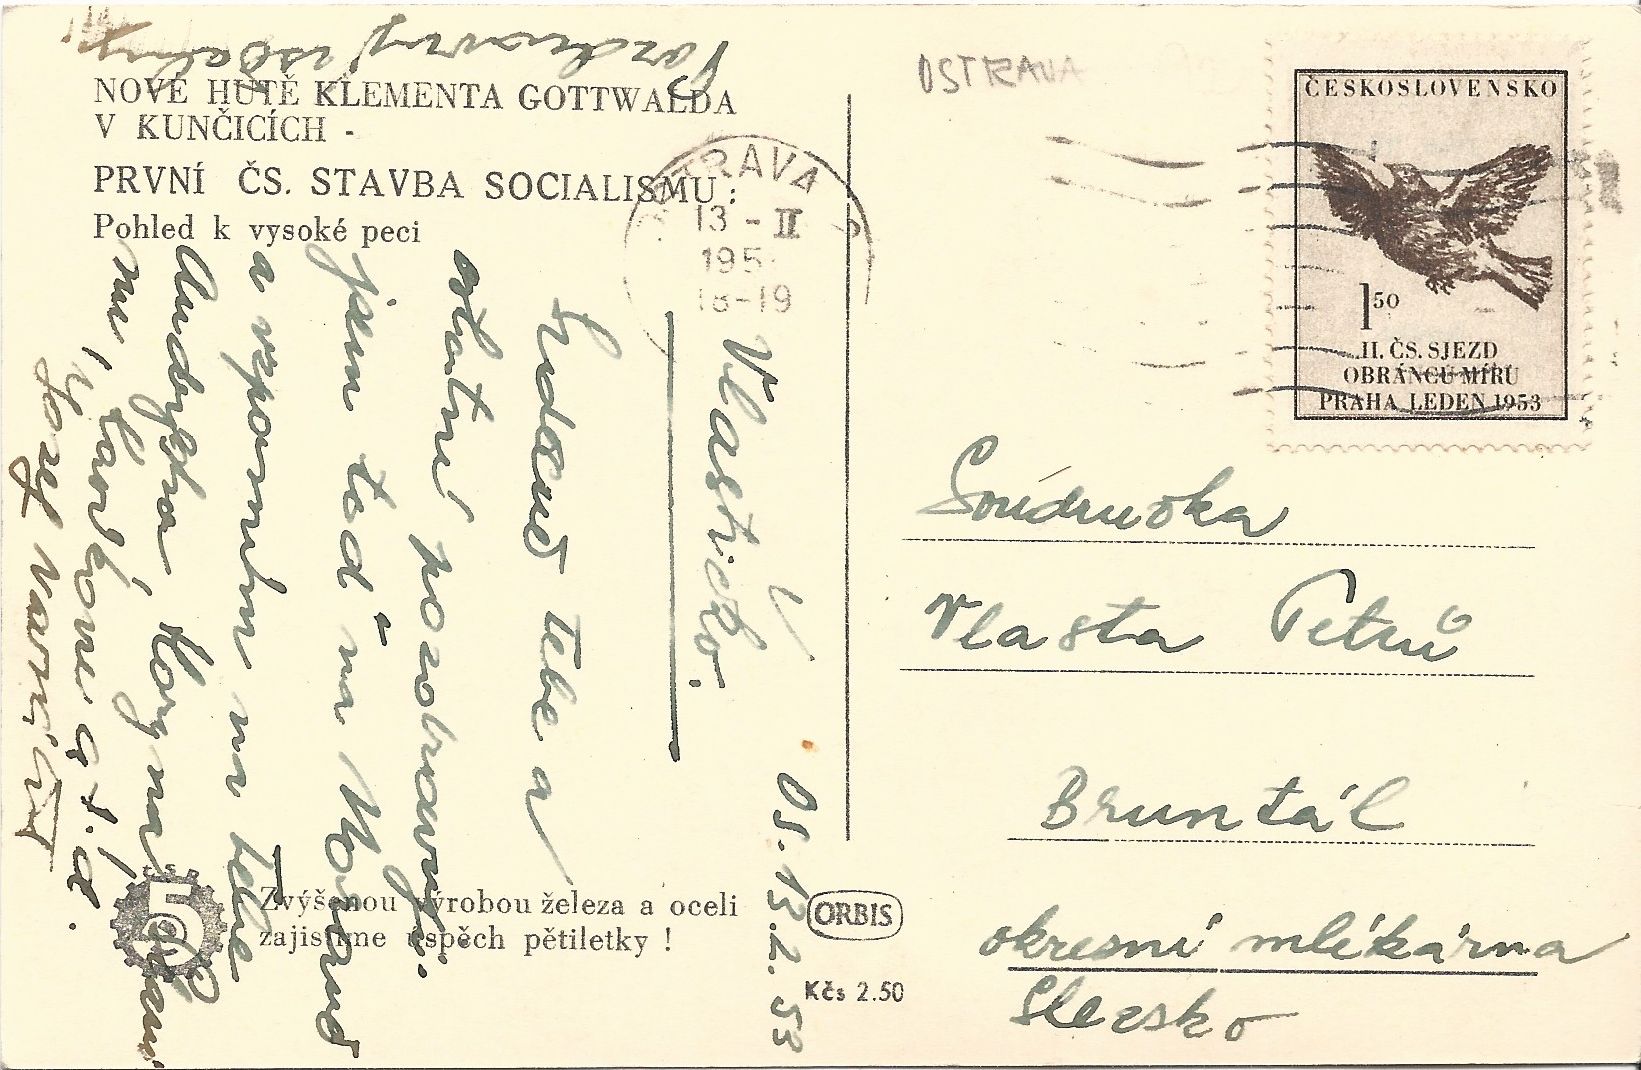 NOVÉ HUTĚ KLEMENTA GOTTWALDA
V KUNČICÍCH -
PRVNÍ ČS. STAVBA SOCIALISMU:
Pohled k vysoké peci
OSTRAVA
OSTRAVA
13 - II
195
18-19
ČESKOSLOVENSKO
1 50
II. ČS. SJEZD
OBRÁNCŮ MÍRU
PRAHA LEDEN 1953
Os. 13.2.53
Vlastičko.
Srdečně Tebe a
ostatní pozdravuji.
jsem teď na Moravě
a vzpomínám na Tebe
a t.d.
Josef
Soudružka
Vlasta Petrů
Bruntál
okresní mlékárna
Slezsko
ČSR
5
Zvýšenou výrobou železa a oceli
zajistíme úspěch pětiletky !
ORBIS
Kčs 2.50